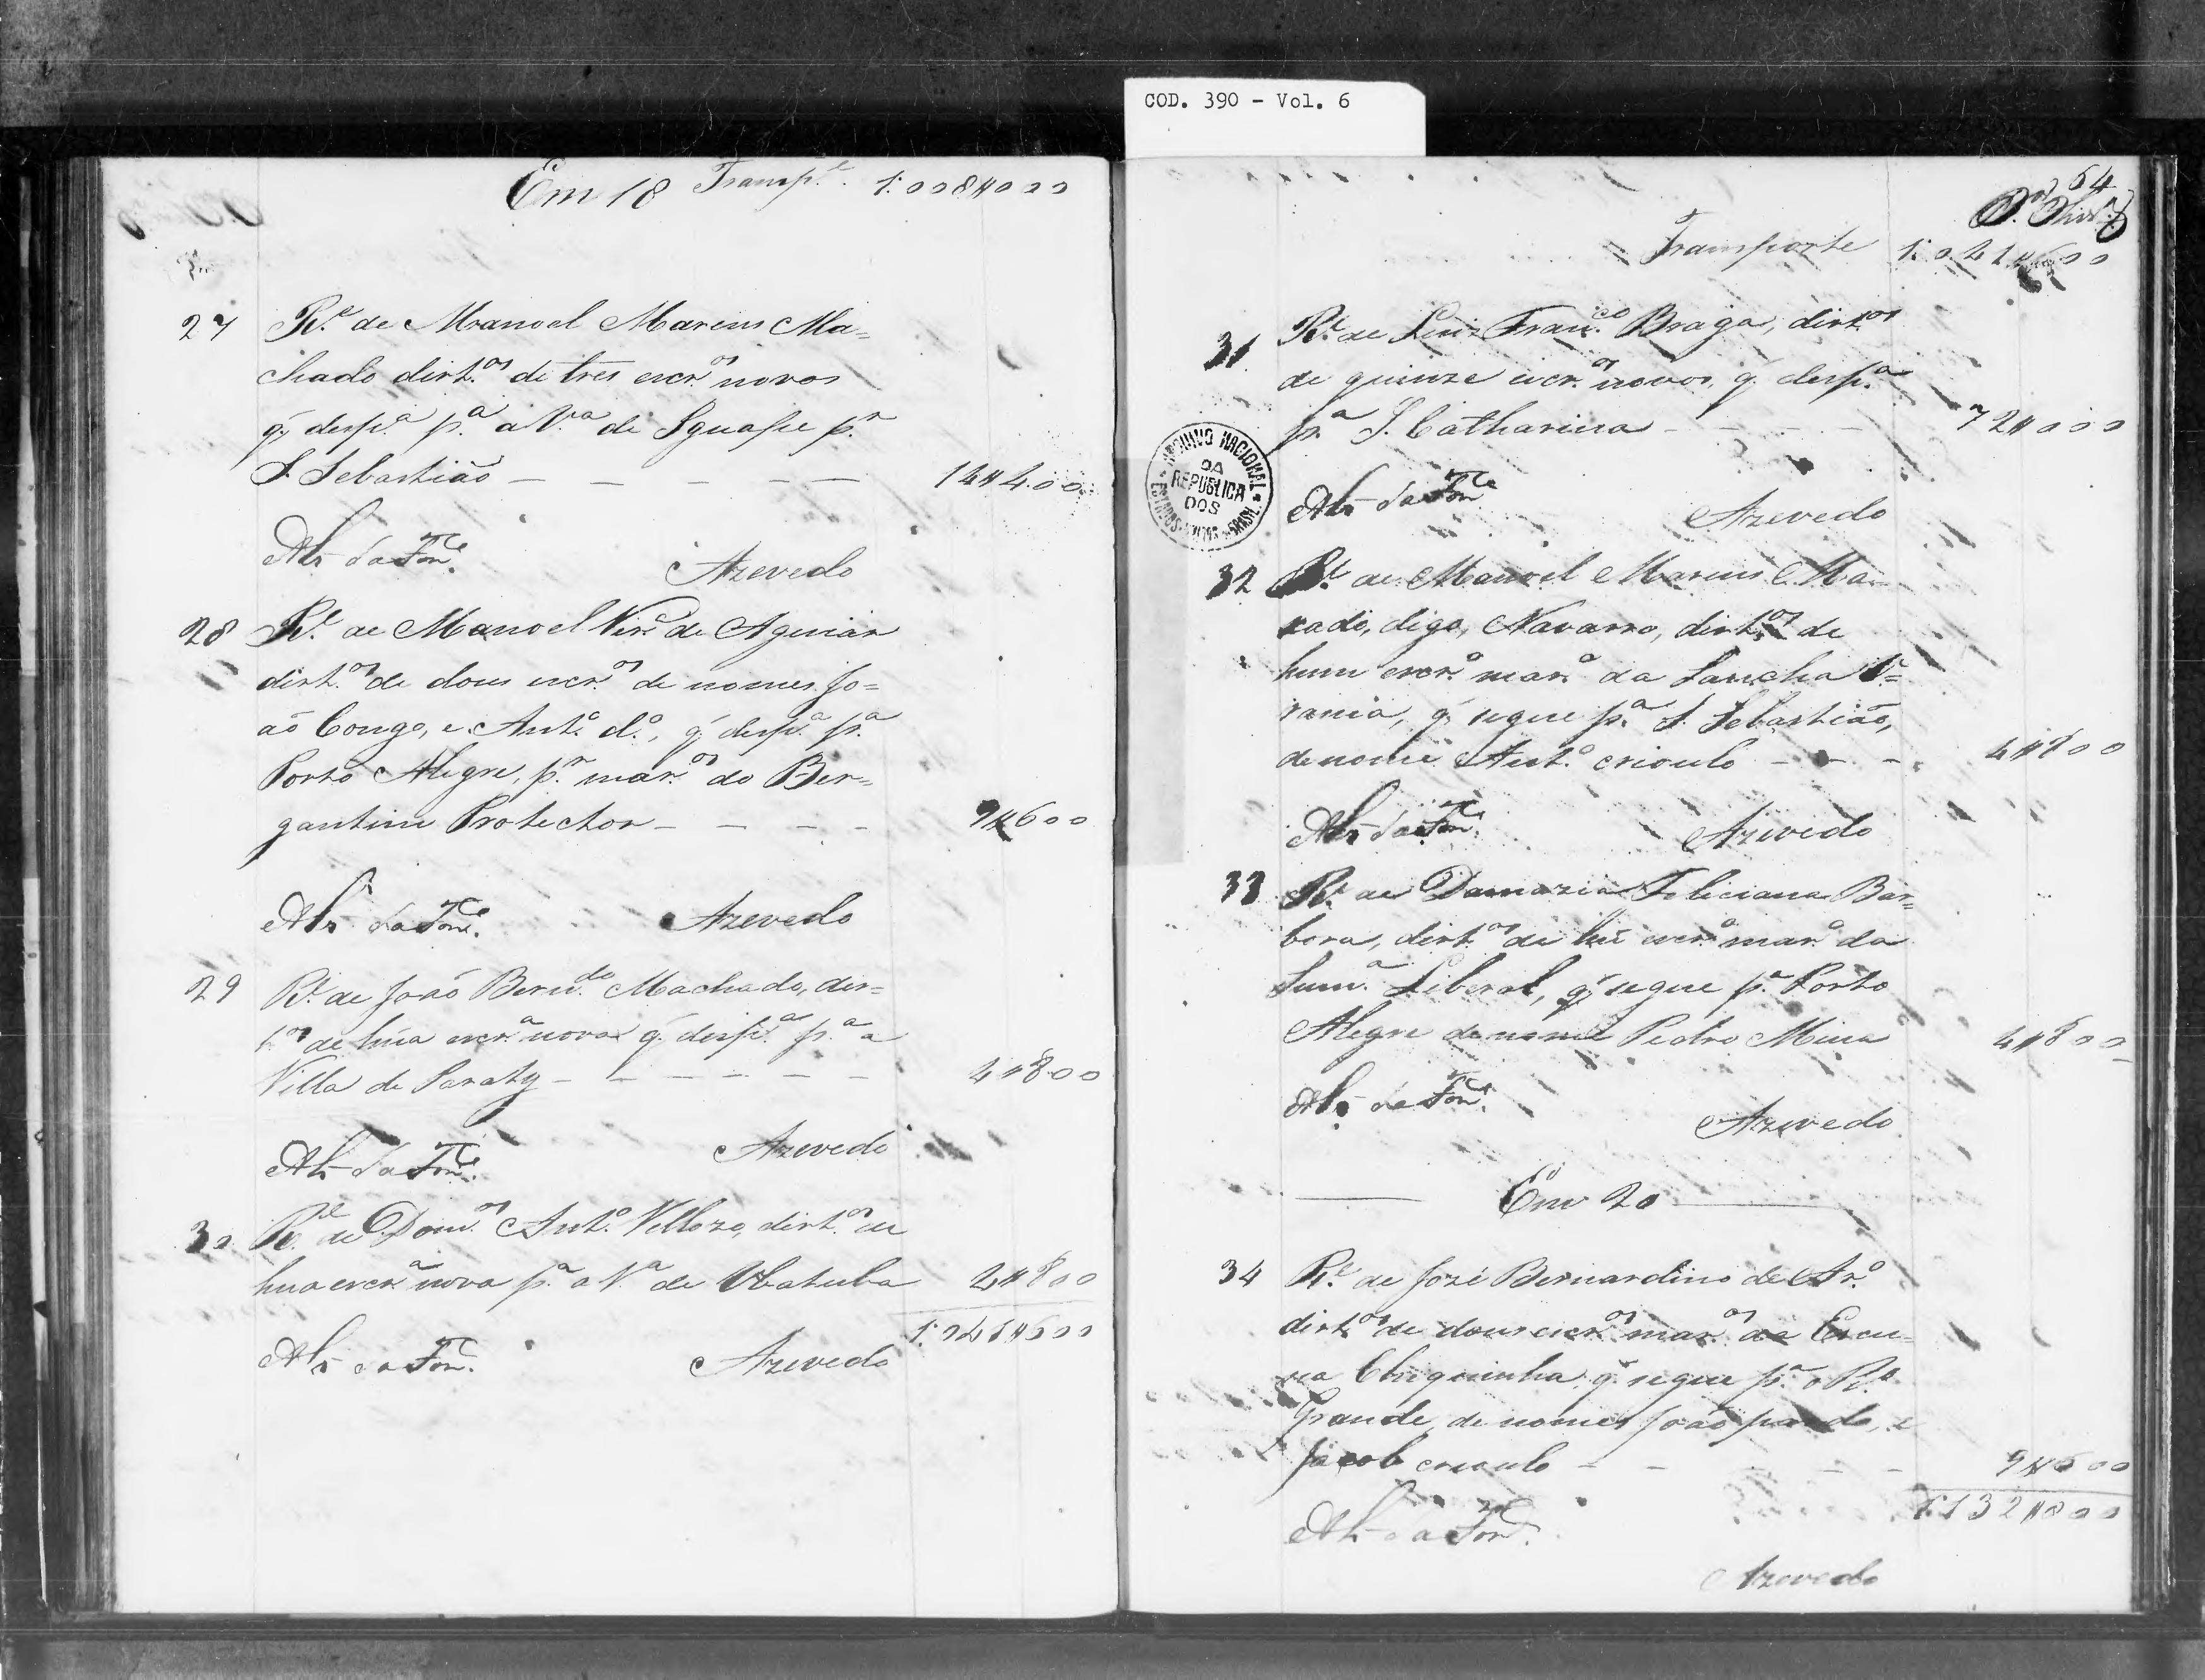 COD. 390 - Vol. 6
Em 18 Transp.e 1:008#000
27 R.e de Manoel Marcus Ma=
chado dirt.os de tres escr.os novos
q' desp.a p.a a V.a de Iguape p.r
S. Sebastião — — — — — 14#400
Alz da Fon.ca Azevedo
28 R.e de Manoel Vir.a de Aguiar
dirt.os de dous escr.os de nomes Jo=
aõ Congo, e Ant.o d.o, q' desp.a p.a
Porto Alegre, p.r mar.os do Ber=
gantim Protector — — — — 9#600
Alz da Fon.ca Azevedo
29 R.e de Joaõ Bern.do Machado, dir=
t.os de hũa escr.a nova q' desp.a p.a a
Villa de Paraty — — — — — — 4#800
Alz da Fon.ca Azevedo
30 R.e de Dom.os Ant.o Vellozo, dirt.os de
hua escr.a nova p.a a V.a de Ubatuba 4#800
1:041#600
Alz da Fon.ca Azevedo
64
Transporte 1:041#600
31 R.e de Luiz Fran.co Braga, dirt.os
de quinze escr.os novos, q' desp.a
p.a S. Catharina — — — — 72#000
ARCHIVO NACIONAL DA REPUBLICA DOS ESTADOS UNIDOS DO BRASIL
Alz da Fon.ca Azevedo
32 R.e de Manoel Marcus Ma=
xado, digo, Navarro, dirt.os de
hum escr.o mar.o da Lancha U=
rania, q' segue p.a S. Sebastião,
de nome Ant.o crioulo — — — 4#800
Alz da Fon.ca Azevedo
33 R.e de Damazia Feliciana Bar=
boza, dirt.os de hũ escr.o mar.o da
Sum.a Liberal, q' segue p.a Porto
Alegre de nome Pedro Mina 4#800
Alz da Fon.ca Azevedo
Em 20
34 R.e de Jozé Bernardino de Ar.o
dirt.os de dous escr.os mar.os da Escu=
na Chiquinha q' segue p.a o R.o
Grande, de nomes João pardo, e
Jacob crioulo — — — — — 9#600
1:132#800
Alz da Fon.ca
Azevedo